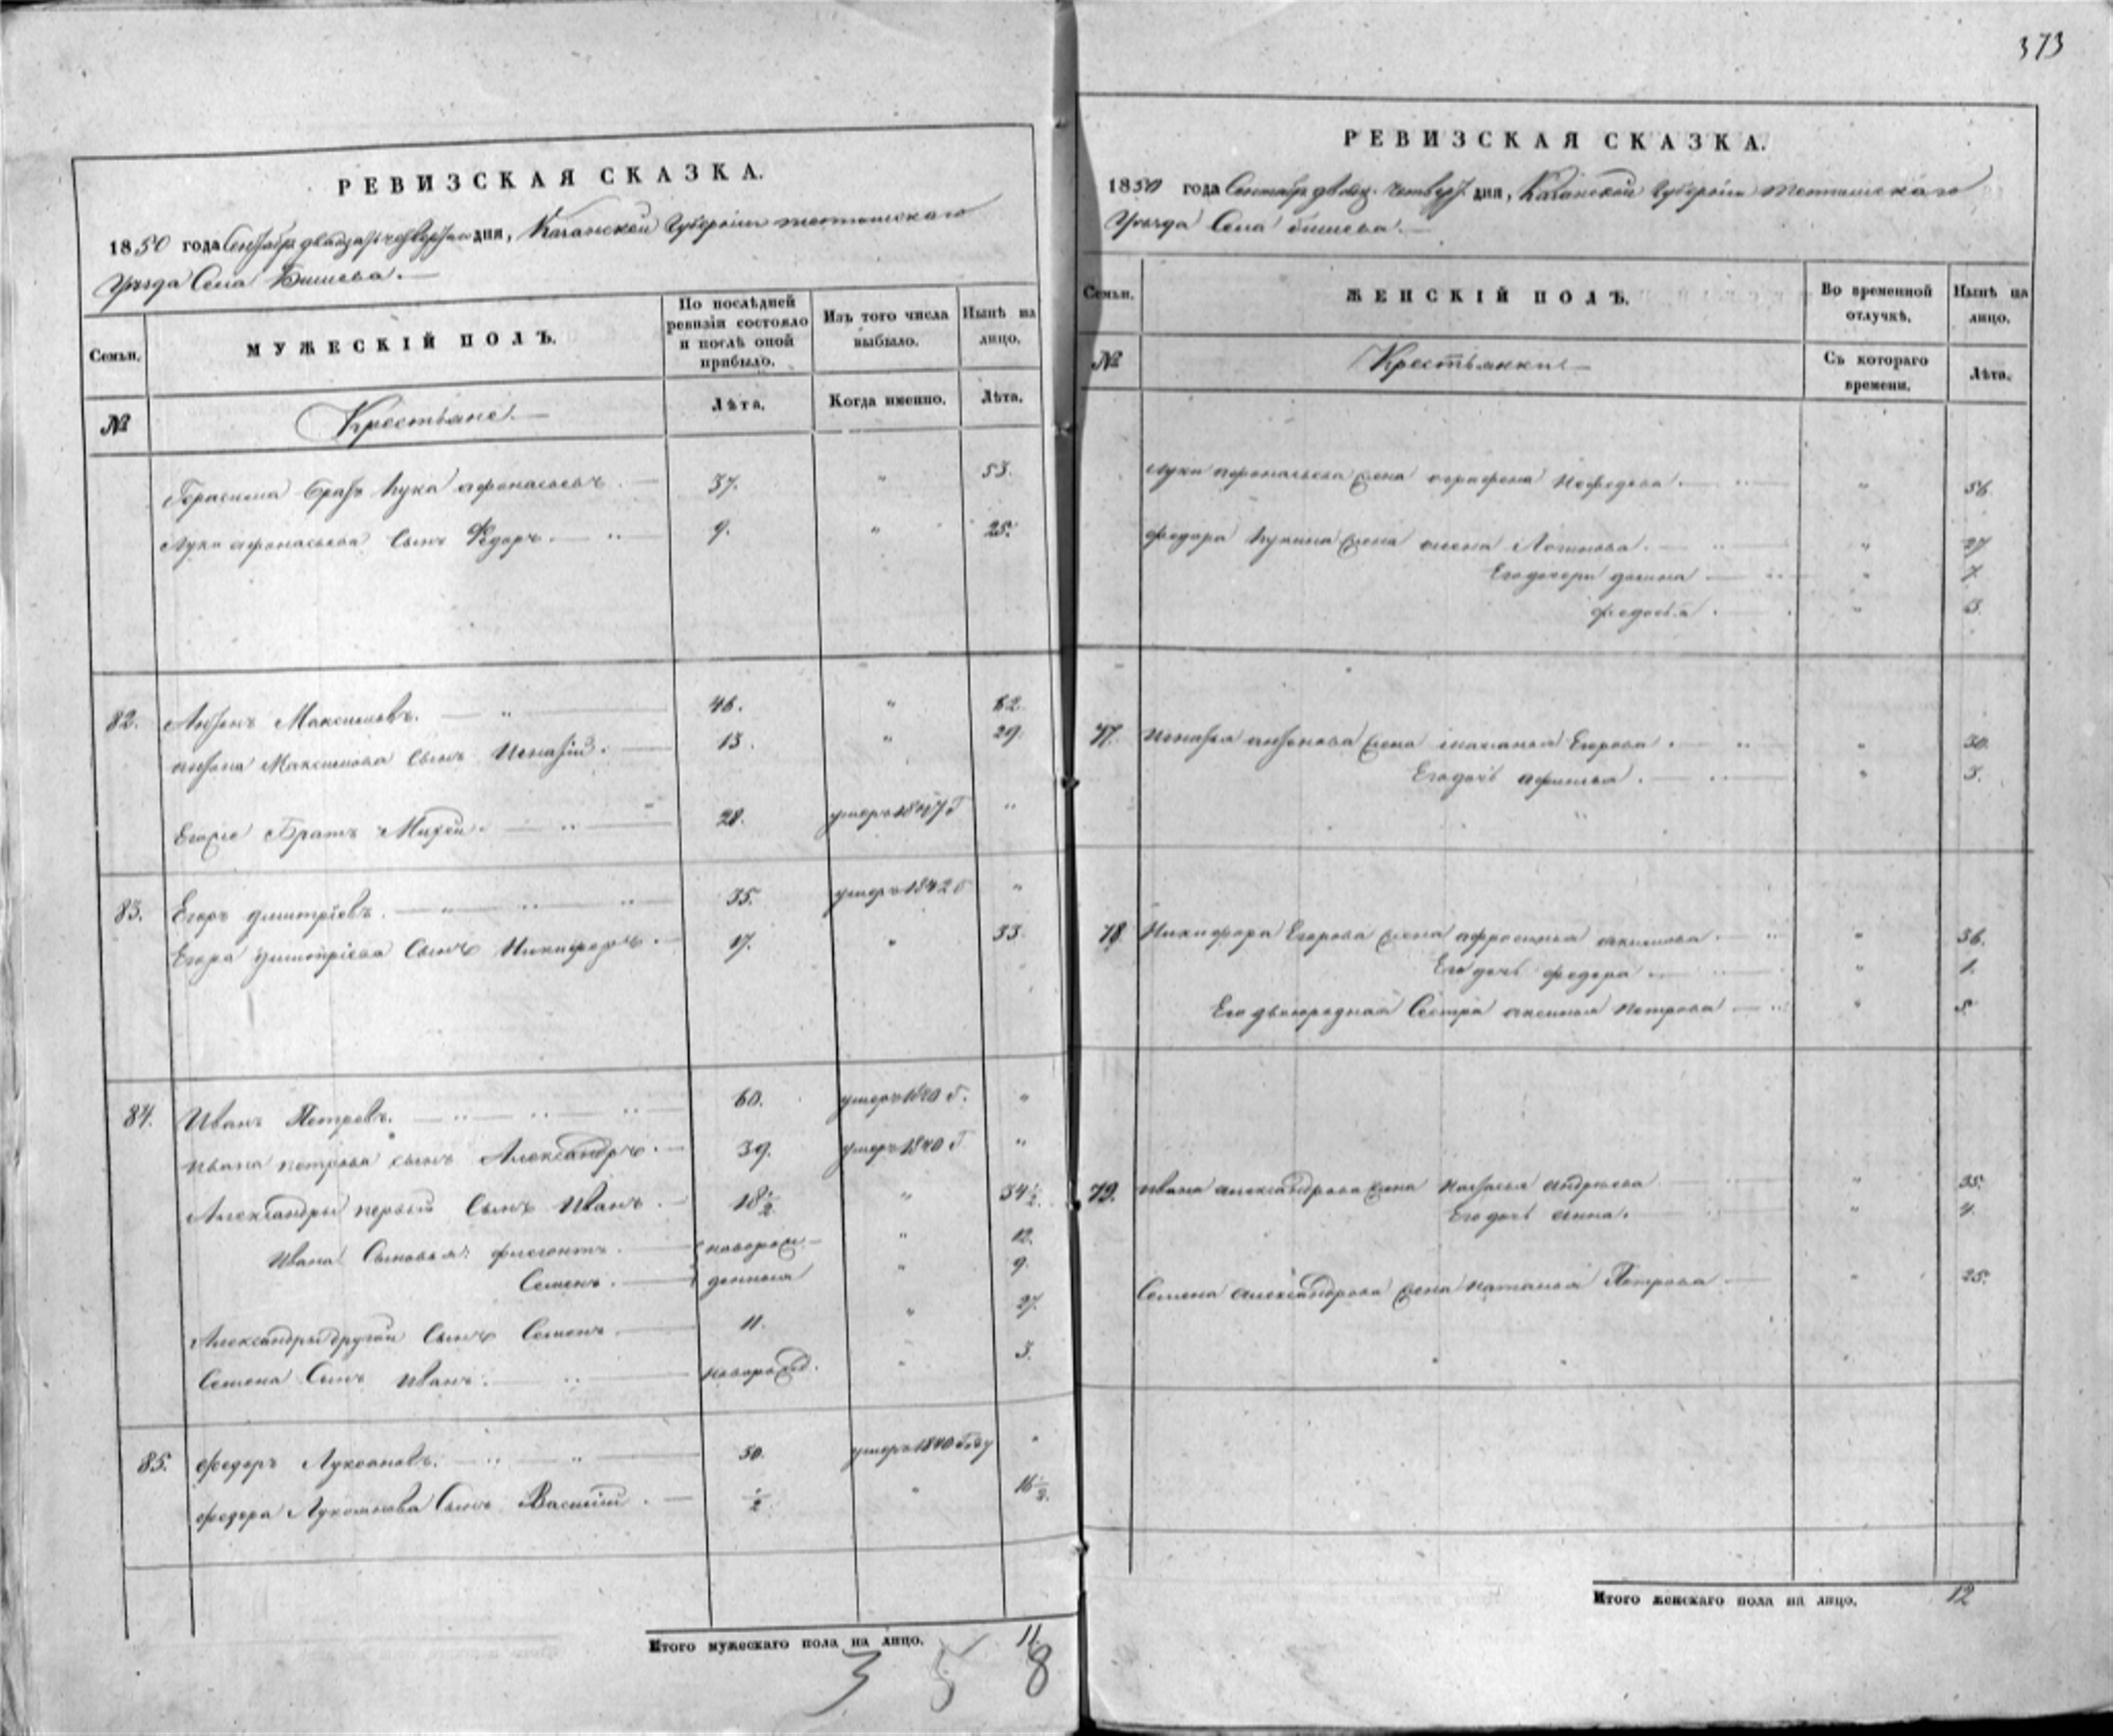 РЕВИЗСКАЯ СКАЗКА.
1850 года Сентября двадцать четвертаго дня, Казанской Губерніи тетюшскаго
Уезда Села Бишева.
Семьи.
МУЖЕСКІЙ ПОЛЪ.
По послѣдней ревизіи состояло и послѣ оной прибыло.
Изъ того числа выбыло.
Нынѣ на лицо.
№
Крестьяне.
Лѣта.
Когда именно.
Лѣта.
Герасима братъ Лука афонасьевъ. 37. " 53.
Луки афонасьева сынъ Федоръ. 9. " 25.
82. Антонъ Максимовъ. 46. " 62.
антона Максимова сынъ Игнатій. 13. " 29.
Братъ Михей. 28. умеръ 1847 Г "
83. Егоръ дмитріевъ. 35. умеръ 1842 г "
Егора дмитріева Сынъ Никифоръ. 17. " 33.
84. Иванъ Петровъ. 60. умеръ 1840 г. "
ивана петрова сынъ Александръ. 39. умеръ 1840 Г "
Александры первый Сынъ Иванъ. 18½ " 34½.
Ивана Сыновья: флегонтъ. новорож- " 12.
Семенъ. денныя " 9.
Александры другой Сынъ Семенъ. 11. " 27.
Семена Сынъ Иванъ. новорожд. " 3.
85. федоръ Лукояновъ. 50. умеръ 1840 Году "
федора Лукоянова Сынъ Василий. ½ " 16½.
Итого мужескаго пола на лицо. 11.
3 5 8
373
РЕВИЗСКАЯ СКАЗКА.
1850 года Сентября двадц. четверт. дня, Казанской Губерніи тетюшскаго
Уезда Села бишева.
Семьи.
ЖЕНСКІЙ ПОЛЪ.
Во временной отлучкѣ.
Нынѣ на лицо.
№
Крестьянки
Съ котораго времени.
Лѣта.
Луки афонасьева жена аграфена Нефедева. " 56.
федора Лукина жена Логинова. " 27
Его дочери " 7.
федосья. " 3.
77. Игнатья антонова жена маланья Егорова. " 30.
Его дочь афимья. " 3.
78. Никифора Егорова жена афросинья акимова. " 36.
Его дочь федора. " 1.
Его двоюродная Сестра аксинья петрова " 5.
79. ивана александрова жена настасья андреева " 35.
Его дочь анна. " 4.
Семена александрова жена наталья Петрова " 25.
Итого женскаго пола на лицо. 12